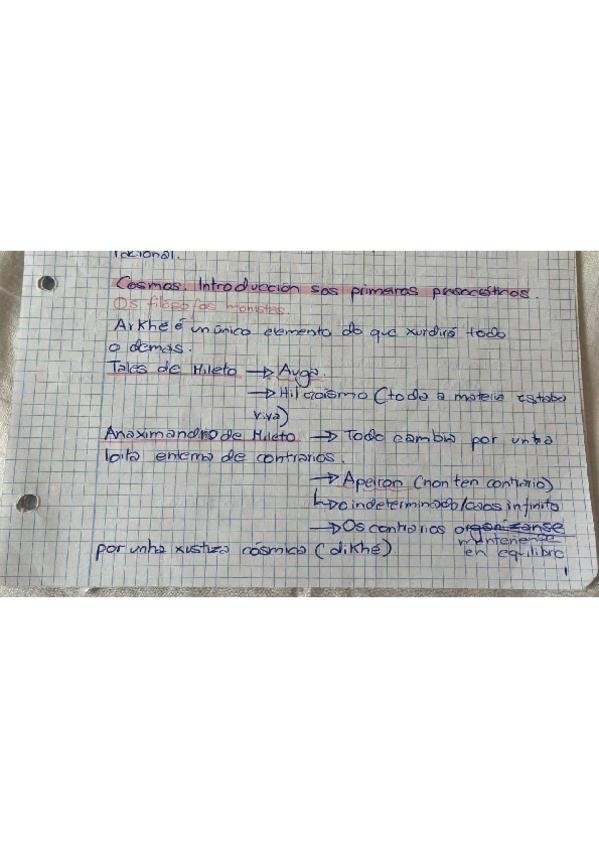 Cosmos. Introducción aos primeiros presocráticos.
Os filósofos monistas.
Arkhé é un único elemento do que xurdirá todo
o demás.
Tales de Mileto → Auga.
→ Hilozoismo (toda a materia estaba
viva)
Anaximandro de Mileto → Todo cambia por unha
loita enterna de contrarios.
→ Apeiron (non ten contrario)
↳ o indeterminado/caos infinito
→ Os contrarios organizanse
mantenense
por unha xustiza cósmica (dikhé) en equilibrio
1